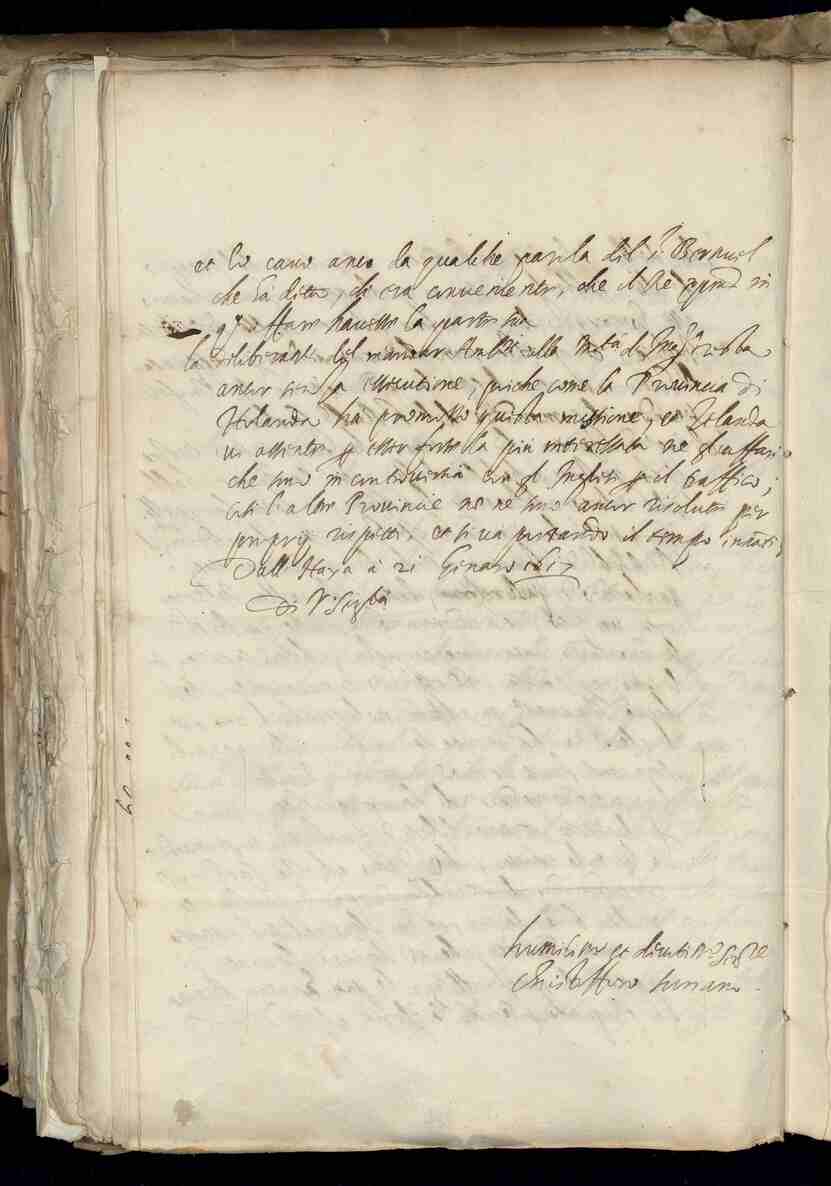 et lo cavo anco da qualche parola del s.r Bernvel
che fà ditta, che era conveniente, che il Re
q.to affare havesse la parte sua
la deliberat.e del mandar Amb.ri alla M.tà d'Ingh.ra resta
ancor senza essecutione; poiche come la Provincia di
Holanda ha promosso questa missione, et Zelanda
vi assente per esser forse la più interessata ne gl'affari
che sono in controversia con gl'Inglesi per il traffico;
così l'altre Provincie ne ne sono ancor risolute per
proprij rispetti; et si va portando il tempo inanti
Dall'Haya à 21 Genaro
Di V. Ser.tà
humilis.mo et devotiss.mo ser.re
Christofforo Suriano